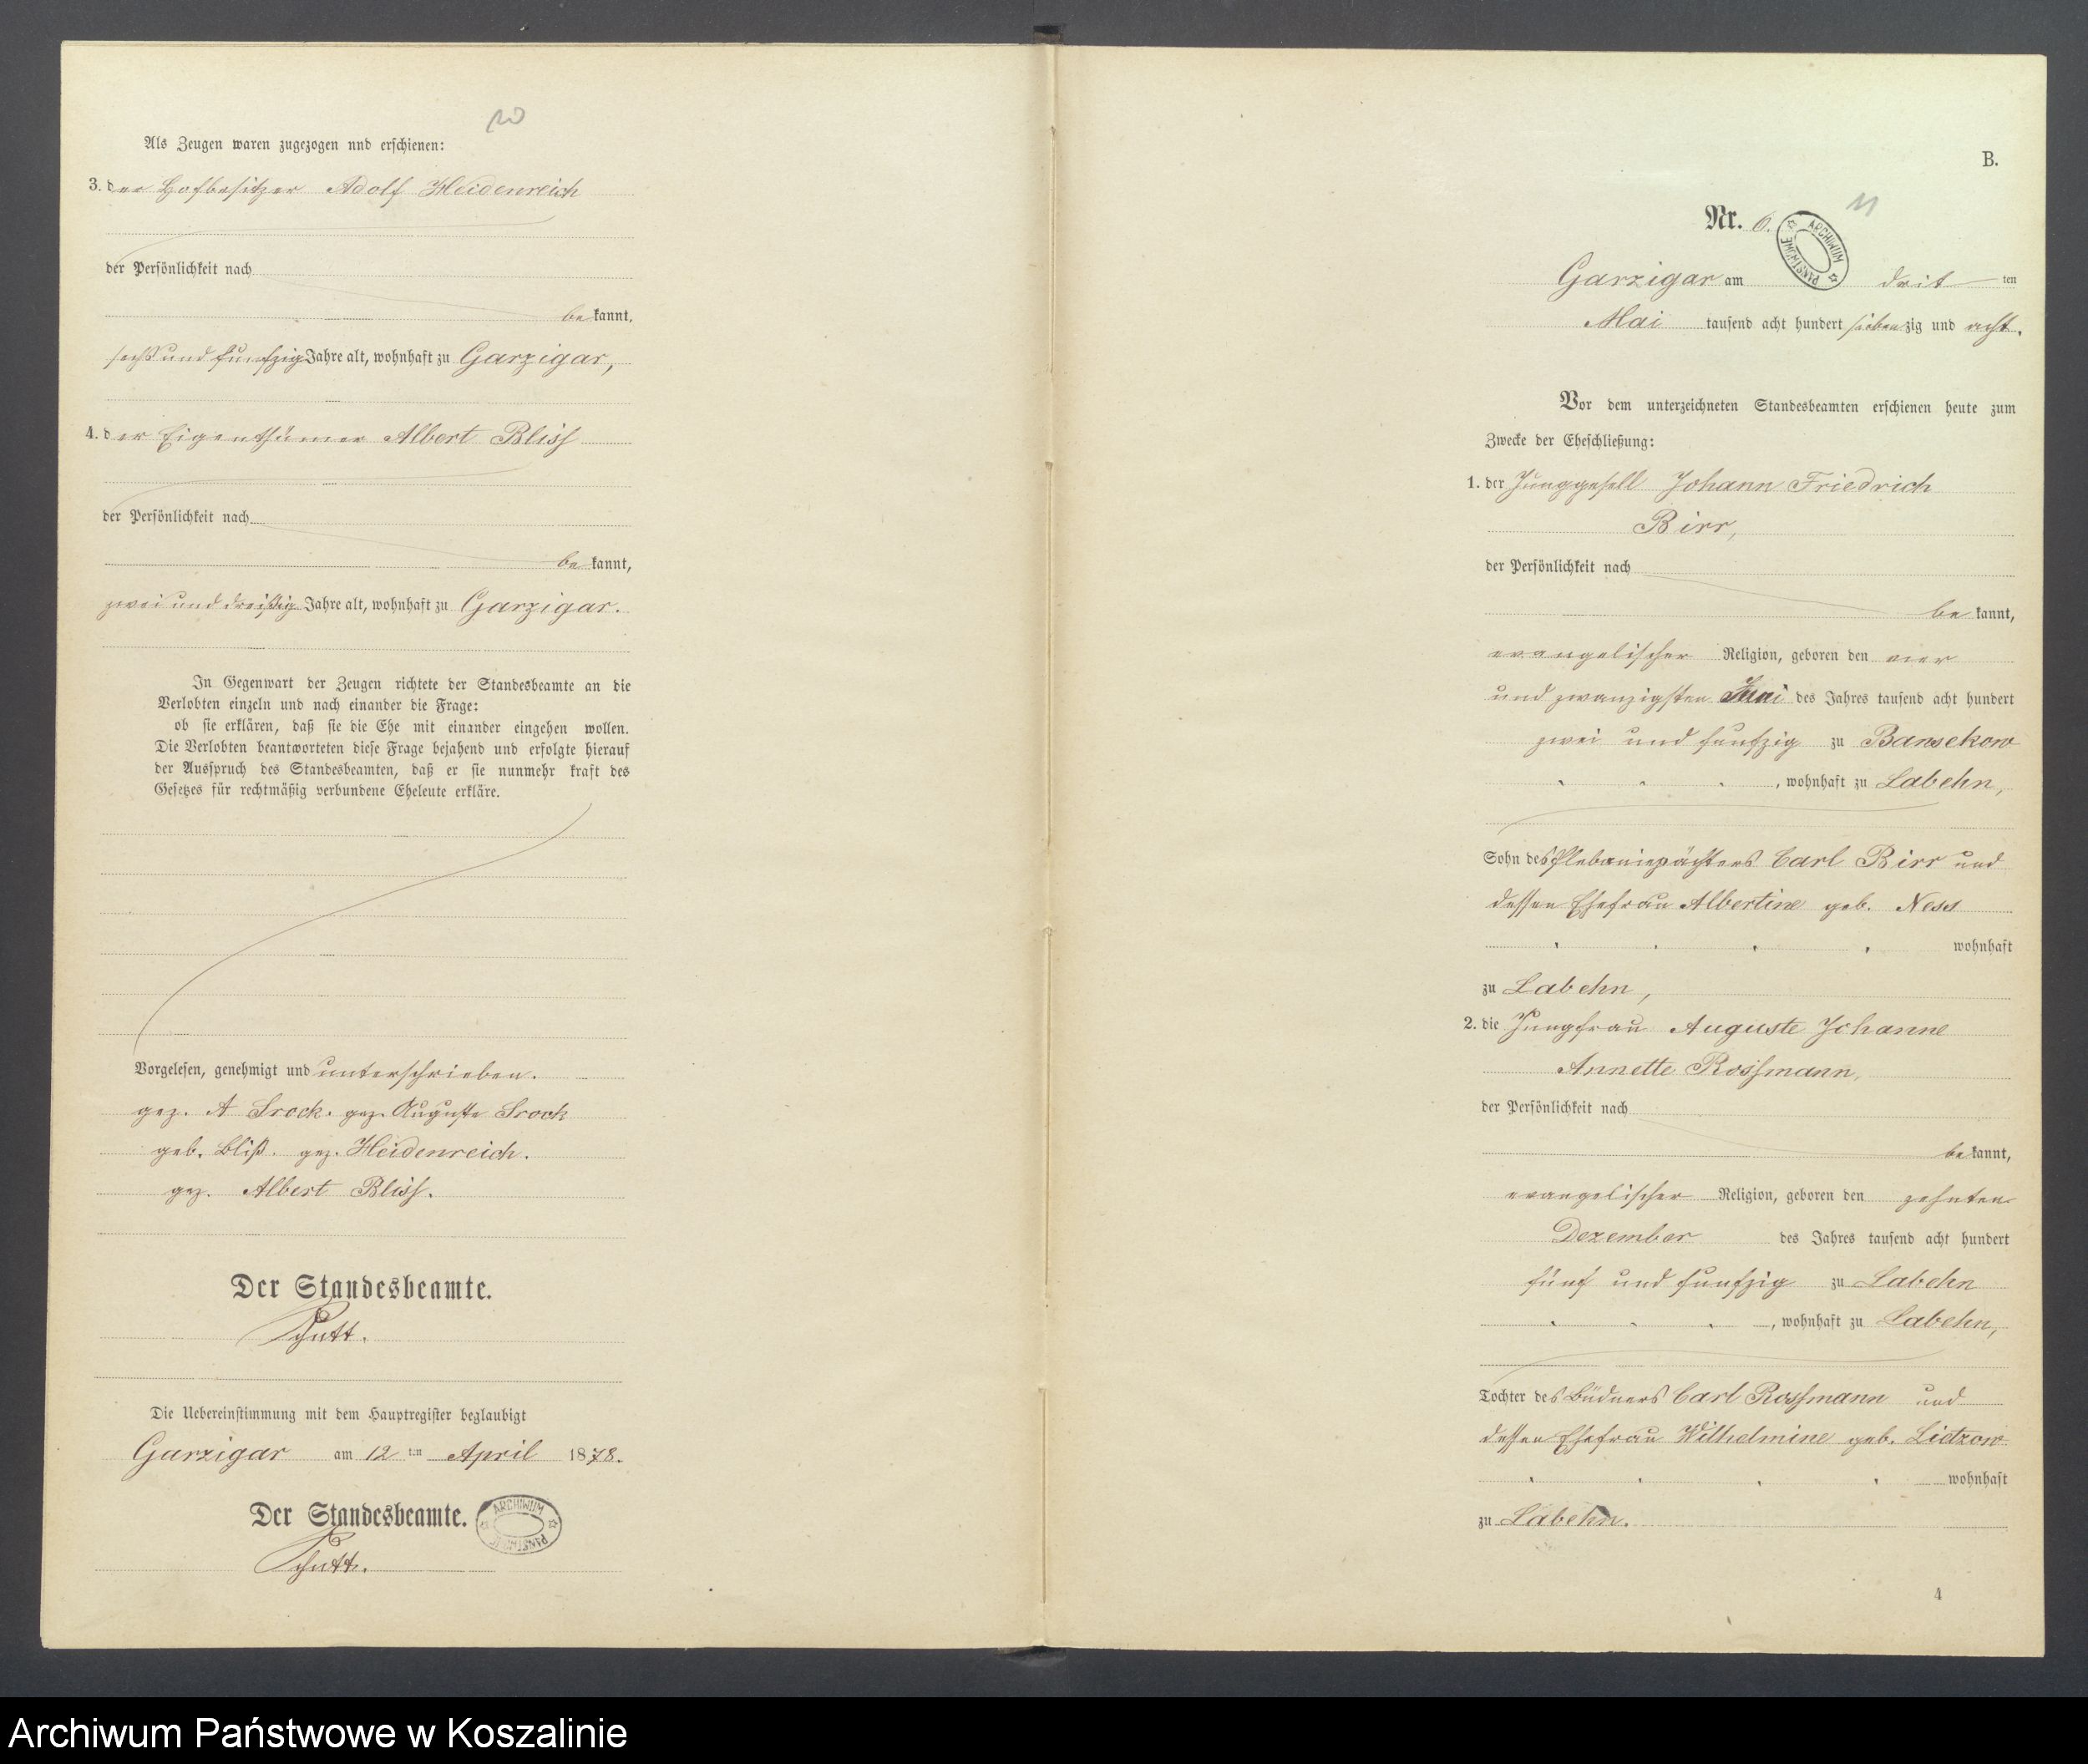 10
Als Zeugen waren zugezogen nnd erschienen:
3. der Hofbesitzer Adolf Heidenreich
der Persönlichkeit nach
be kannt,
sechs und funfzig Jahre alt, wohnhaft zu Garzigar,
4. der Eigenthümer Albert Bliss
der Persönlichkeit nach
be kannt,
zwei und dreißig Jahre alt, wohnhaft zu Garzigar.
In Gegenwart der Zeugen richtete der Standesbeamte an die
Verlobten einzeln und nach einander die Frage:
ob sie erklären, daß sie die Ehe mit einander eingehen wollen.
Die Verlobten beantworteten diese Frage bejahend und erfolgte hierauf
der Ausspruch des Standesbeamten, daß er sie nunmehr kraft des
Gesetzes für rechtmäßig verbundene Eheleute erkläre.
Vorgelesen, genehmigt und unterschrieben.
gez. A Srock. gez. Auguste Srock
geb. Bliß. gez. Heidenreich.
gez. Albert Bliss.
Der Standesbeamte.
Schutt.
Die Uebereinstimmung mit dem Hauptregister beglaubigt
Garzigar am 12 ten April 1878.
Der Standesbeamte.
Schutt.
ARCHIWUM PAŃSTWOWE
B.
11
Nr. 6.
ARCHIWUM PAŃSTWOWE
Garzigar am drit ten
Mai tausend acht hundert siebenzig und acht.
Vor dem unterzeichneten Standesbeamten erschienen heute zum
Zwecke der Eheschließung:
1. der Junggesell Johann Friedrich
Birr,
der Persönlichkeit nach
be kannt,
evangelischer Religion, geboren den vier
und zwanzigsten Juni des Jahres tausend acht hundert
zwei und funfzig zu Bansekow
, wohnhaft zu Labehn,
Sohn des Plebaniepächters Carl Birr und
dessen Ehefrau Albertine geb. Ness
wohnhaft
zu Labehn,
2. die Jungfrau Auguste Johanne
Annette Rossmann,
der Persönlichkeit nach
be kannt,
evangelischer Religion, geboren den zehnten
Dezember des Jahres tausend acht hundert
fünf und funfzig zu Labehn
, wohnhaft zu Labehn,
Tochter des Büdners Carl Rossmann und
dessen Ehefrau Wilhelmine geb. Lietzow
wohnhaft
zu Labehn.
4
Archiwum Państwowe w Koszalinie